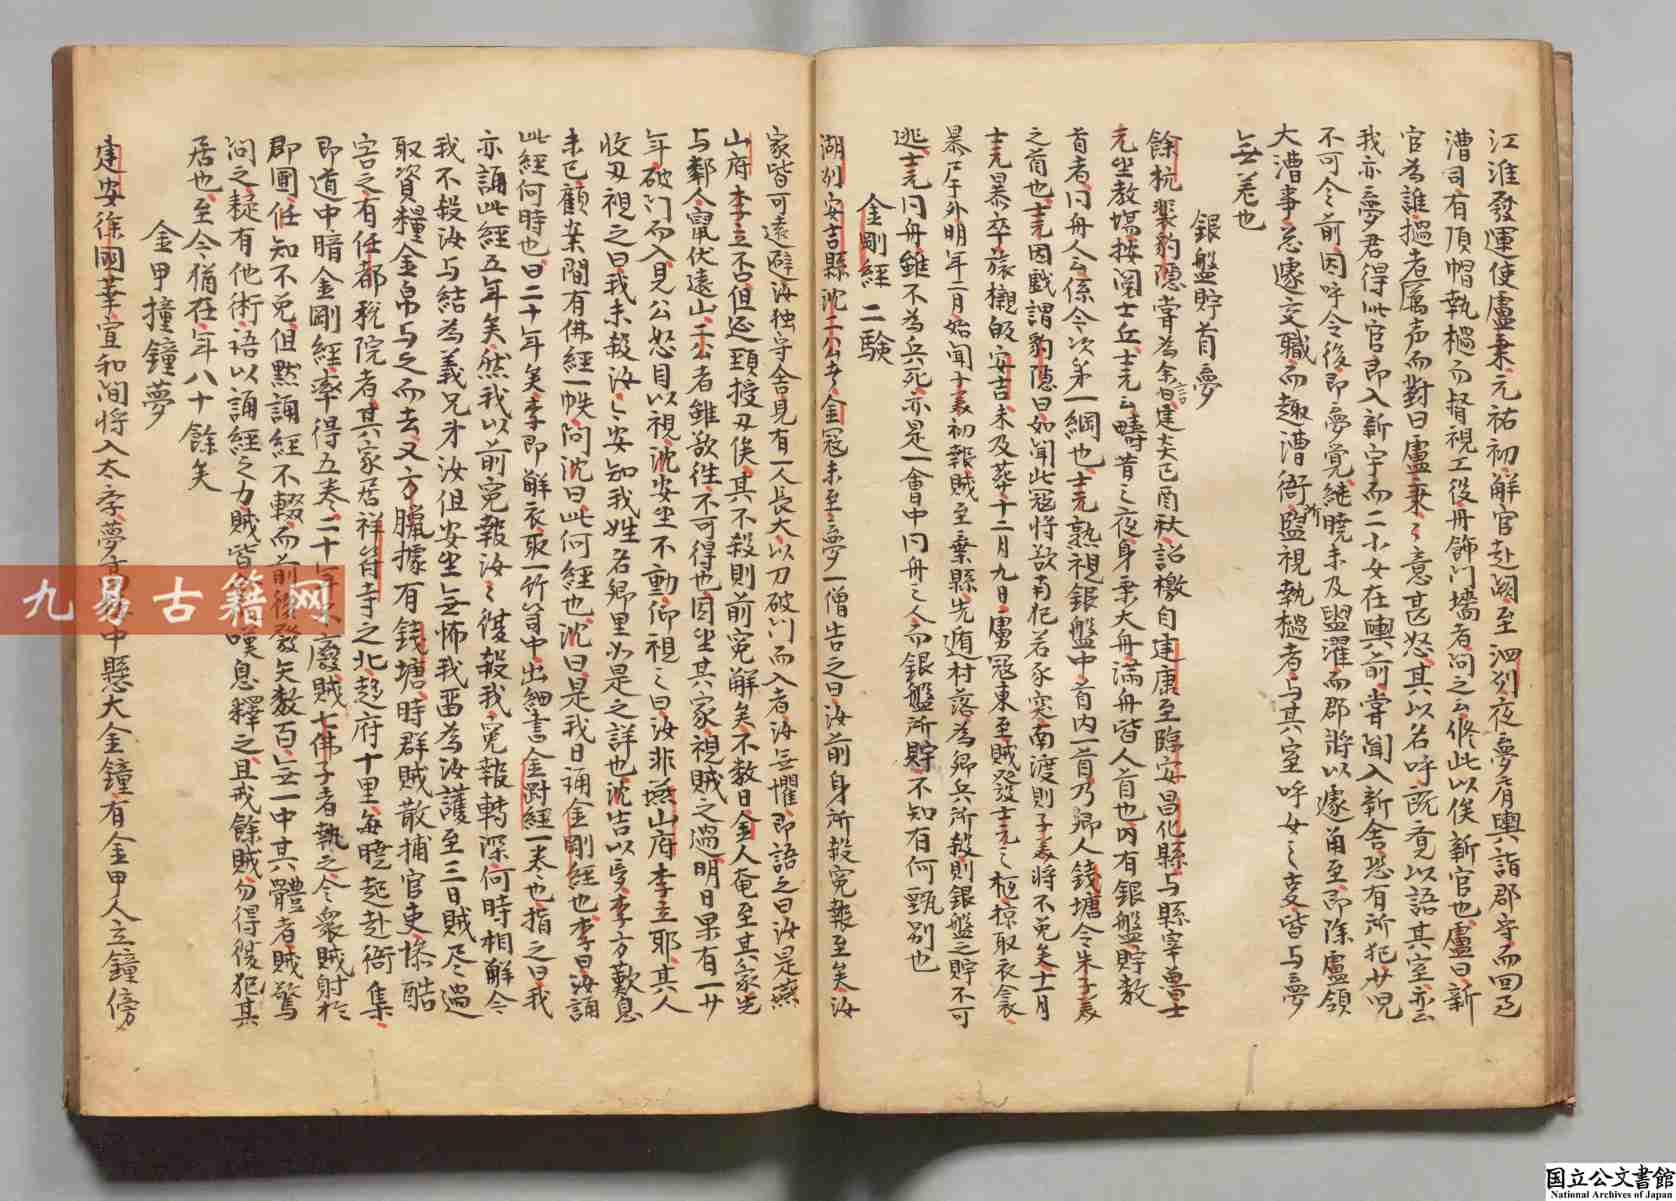 江淮發運使盧秉元祐初解官赴闕至泗州夜夢肩輿詣郡守而回過
漕司有頂帽執檛而督視工役冊飾門墻者問之云修此以俟新官也盧曰新
官為誰檛者厲声而對曰盧秉〻意甚怒其以名呼既覺以語其室亦云
我亦夢君得此官即入新宇而二小女在輿前常聞入新舍恐有所犯廿兒
不可令前因呼令後即夢覺純曉未及盥濯而郡將以遽角至即除盧領
大漕事忽遽交職而趣漕衙所監視執檛者与其室呼女之事皆与夢
無差也
銀盤貯首夢
餘杭裴豹隱嘗為余言建炎己酉秋詔檄自建康至臨安昌化縣与縣宰魯士
元坐教場按閱士丘士元云疇昔之夜身乗大舟滿舟皆人首也内有銀盤貯数
首者同舟人云係今次第一綱也士元熟視銀盤中首内一首乃卿人錢塘令朱子美
之首也士元因戲謂豹隱曰如聞此冦將欲南犯若豕突南渡則子美將不免矣十一月
士元暴卒旅櫬皈安吉未及葬十二月九日虜冦東至賊發士元之柩掠取衣衾
暴尸于外明年二月始聞子美初報賊至棄縣先遁村落為卿兵所殺則銀盤之貯不可
逃士元同舟雖不為兵死亦是一會中同舟之人而銀盤所貯不知有何甄别也
金剛經二驗
湖州安吉縣沈二公者金冦未至夢一僧告之曰汝前身所殺寃報至矣汝
家皆可遠避汝独守舍見有一人長大以刀破門而入者汝無懼即語之曰汝是燕
山府李立不但延頸授刃俟其不殺則前寃解矣不数日金人奄至其家先
与鄰人竄伏遠山二公者雖欲徃不可得也因坐其家視賊之過明日果有一廿
年破門而入見公怒目以視沈安坐不動仰視之曰汝非燕山府李立耶其人
收刃視之曰我未殺汝〻安知我姓名卿里如是之詳也沈告以夢李方歎息
未已顧案間有佛經一帙問沈曰此何經也沈曰是我日誦金剛經也李曰汝誦
此經何時也曰二十年矣李即解衣取一竹筒中出細書金剛經一卷也指之曰我
亦誦此經五年矣然我以前寃報汝〻後殺我寃報轉深何時相解今
我不殺汝与結為義兄弟汝但安坐無怖我畱為汝護至三日賊尽過
取資糧金帛与之而去又方臘據有錢塘時群賊散捕官吏惨酷
害之有任都税院者其家居祥符寺之北趍府十里每曉起赴衙集
即道中暗金剛經率得五卷二十年不廢賊七佛子者執之令衆賊射於
郡圃任知不免但默誦經不輟而前後發矢数百無一中其體者賊驚
問之㝡有他術語以誦經之力賊皆嘆息釋之且戒餘賊勿得復犯其
居也至今猶在年八十餘矣
金甲撞鐘夢
建安徐國華宣和間將入太李夢中懸大金鐘有金甲人立鐘傍
九易古籍网
国立公文書館
National Archives of Japan